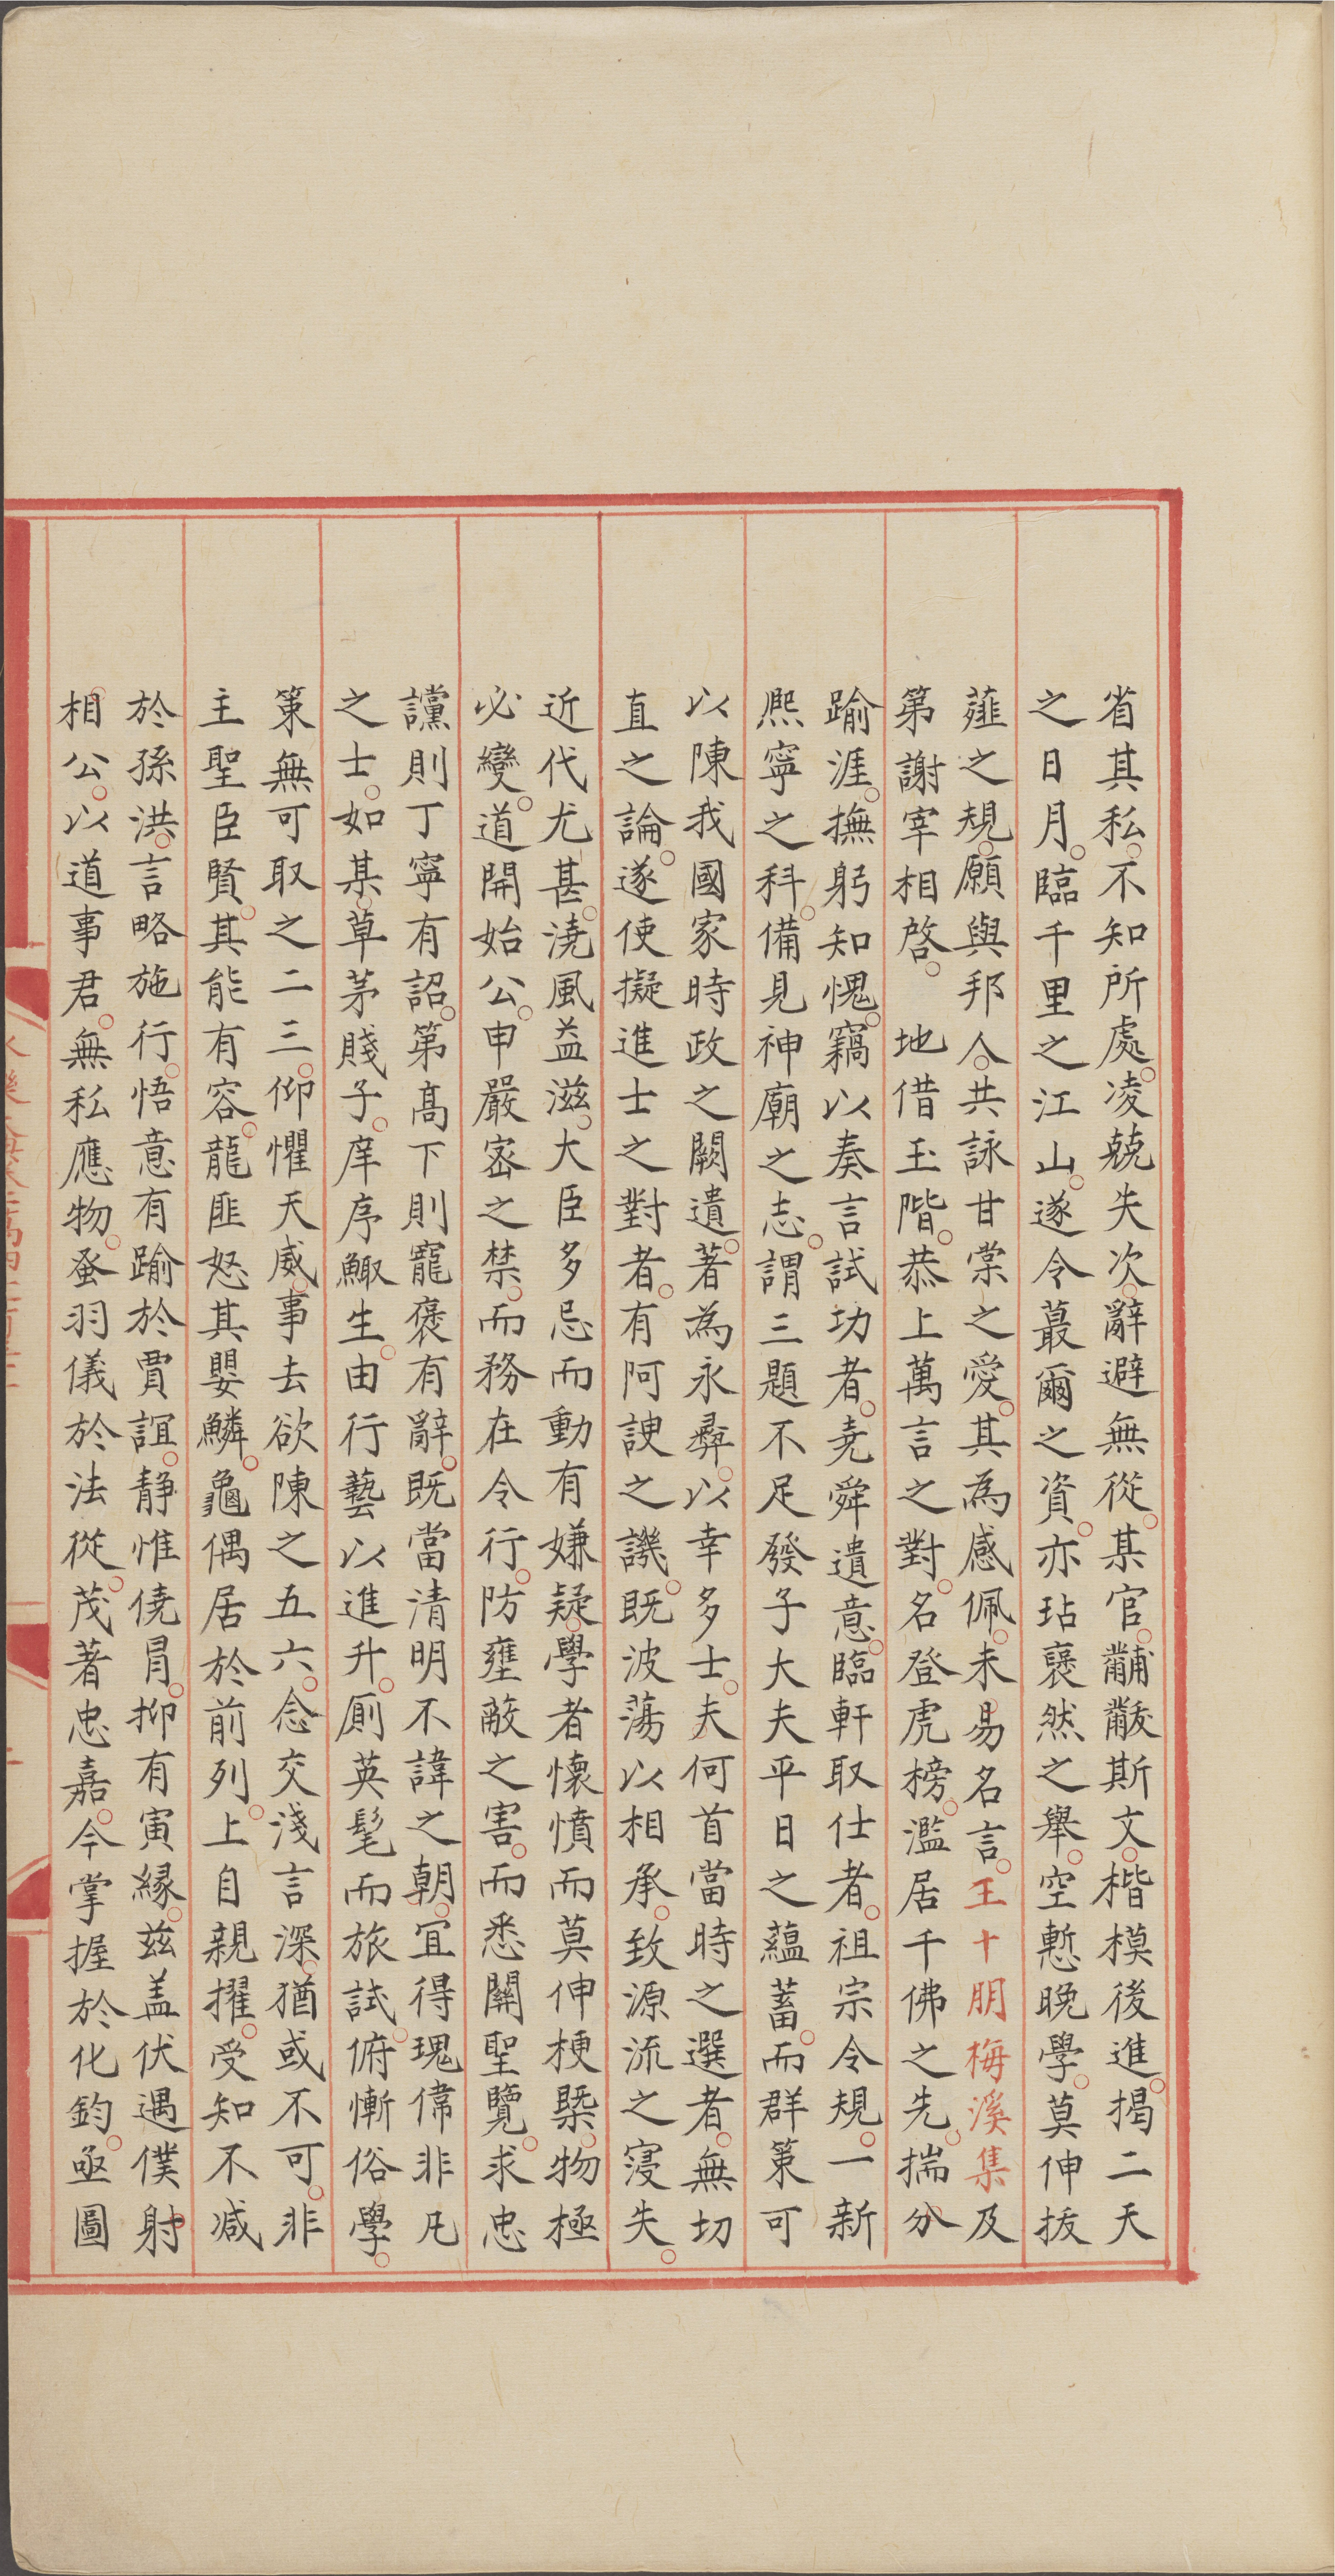 省其私不知所處凌兢失次辭避無從某官黼黻斯文楷模後進揭二天
之日月臨千里之江山遂令蕞爾之資亦玷襃然之舉空慙晚學莫伸拔
薤之規願與邦人共詠甘棠之愛其為感佩未易名言王十朋梅溪集及
第謝宰相啓 地借玉階恭上萬言之對名登虎榜濫居千佛之先揣分
踰涯撫躬知愧竊以奏言試功者堯舜遺意臨軒取仕者祖宗令規一新
熈寧之科備見神廟之志謂三題不足發子大夫平日之藴蓄而群策可
以陳我國家時政之闕遺著為永彛以幸多士夫何首當時之選者無切
直之論遂使擬進士之對者有阿諛之譏既波蕩以相承致源流之寖失
近代尤甚澆風益滋大臣多忌而動有嫌疑學者懷憤而莫伸梗槩物極
必變道開始公申嚴宻之禁而務在令行防壅蔽之害而悉關聖覽求忠
讜則丁寧有詔第髙下則寵褒有辭既當清明不諱之朝宜得瑰偉非凡
之士如某草茅賤子庠序鯫生由行藝以進升厠英髦而旅試俯慚俗學
策無可取之二三仰懼天威事去欲陳之五六念交淺言深猶或不可非
主聖臣賢其能有容龍匪怒其嬰鱗龜偶居於前列上自親擢受知不减
於孫洪言略施行悟意有踰於賈誼静惟僥冒抑有寅縁兹盖伏遇僕射
相公以道事君無私應物蚤羽儀於法從茂著忠嘉今掌握於化鈞亟圖